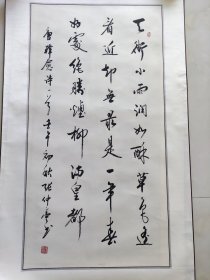 天街小雨润如酥草色遥
看近却無最是一年春
好處绝勝煙柳满皇都
唐韩愈诗一首壬午初秋